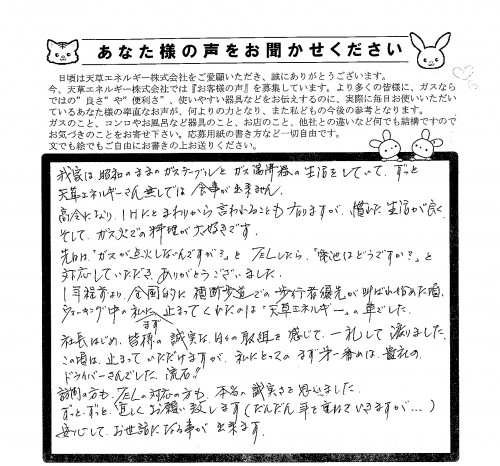 あなた様の声をお聞かせください
日頃は天草エネルギー株式会社をご愛顧いただき、誠にありがとうございます。
今、天草エネルギー株式会社では『お客様の声』を募集しています。より多くの皆様に、ガスなら
ではの”良さ”や”便利さ”、使いやすい器具などをお伝えするのに、実際に毎日お使いいただい
ているあなた様の率直なお声が、何よりの力となり、また私どもの今後の参考となります。
ガスのこと、コンロやお風呂など器具のこと、お店のこと、他社との違いなど何でも結構ですので
お気づきのことをお寄せ下さい。応募用紙の書き方など一切自由です。
文でも絵でもご自由にお書きの上お送りください。
我家は、昭和のままのガステーブルとガス湯沸器の生活をしていて、ずっと
天草エネルギーさん無しでは食事が出来ません。
高令になり、IHにとまわりから言われることも有りますが、慣れた生活が良く、
そして、ガス火での料理が大好きです。
先日は、「ガスが点火しないんですが?」とTELしたら、「電池はどうですか?」と
対応していただき、ありがとうございました。
1年程前より、全国的に横断歩道での歩行者優先が叫ばれ始めた頃、
ウォーキング中の私に、止まってくれたのは「天草エネルギー」の車でした。
まず
社長はじめ、皆様の誠実な日々の取組を感じて、一礼して渡りました。
この頃は、止まっていただけますが、私にとってのまず第一番めは、貴社の
ドライバーさんでした。流石!!
訪問の方も、TELの対応の方も、本当の誠実さを思いました。
ずっと、ずっと、宜しくお願い致します(だんだん年を重ねていきますが…)
安心して、お世話になる事が出来ます。